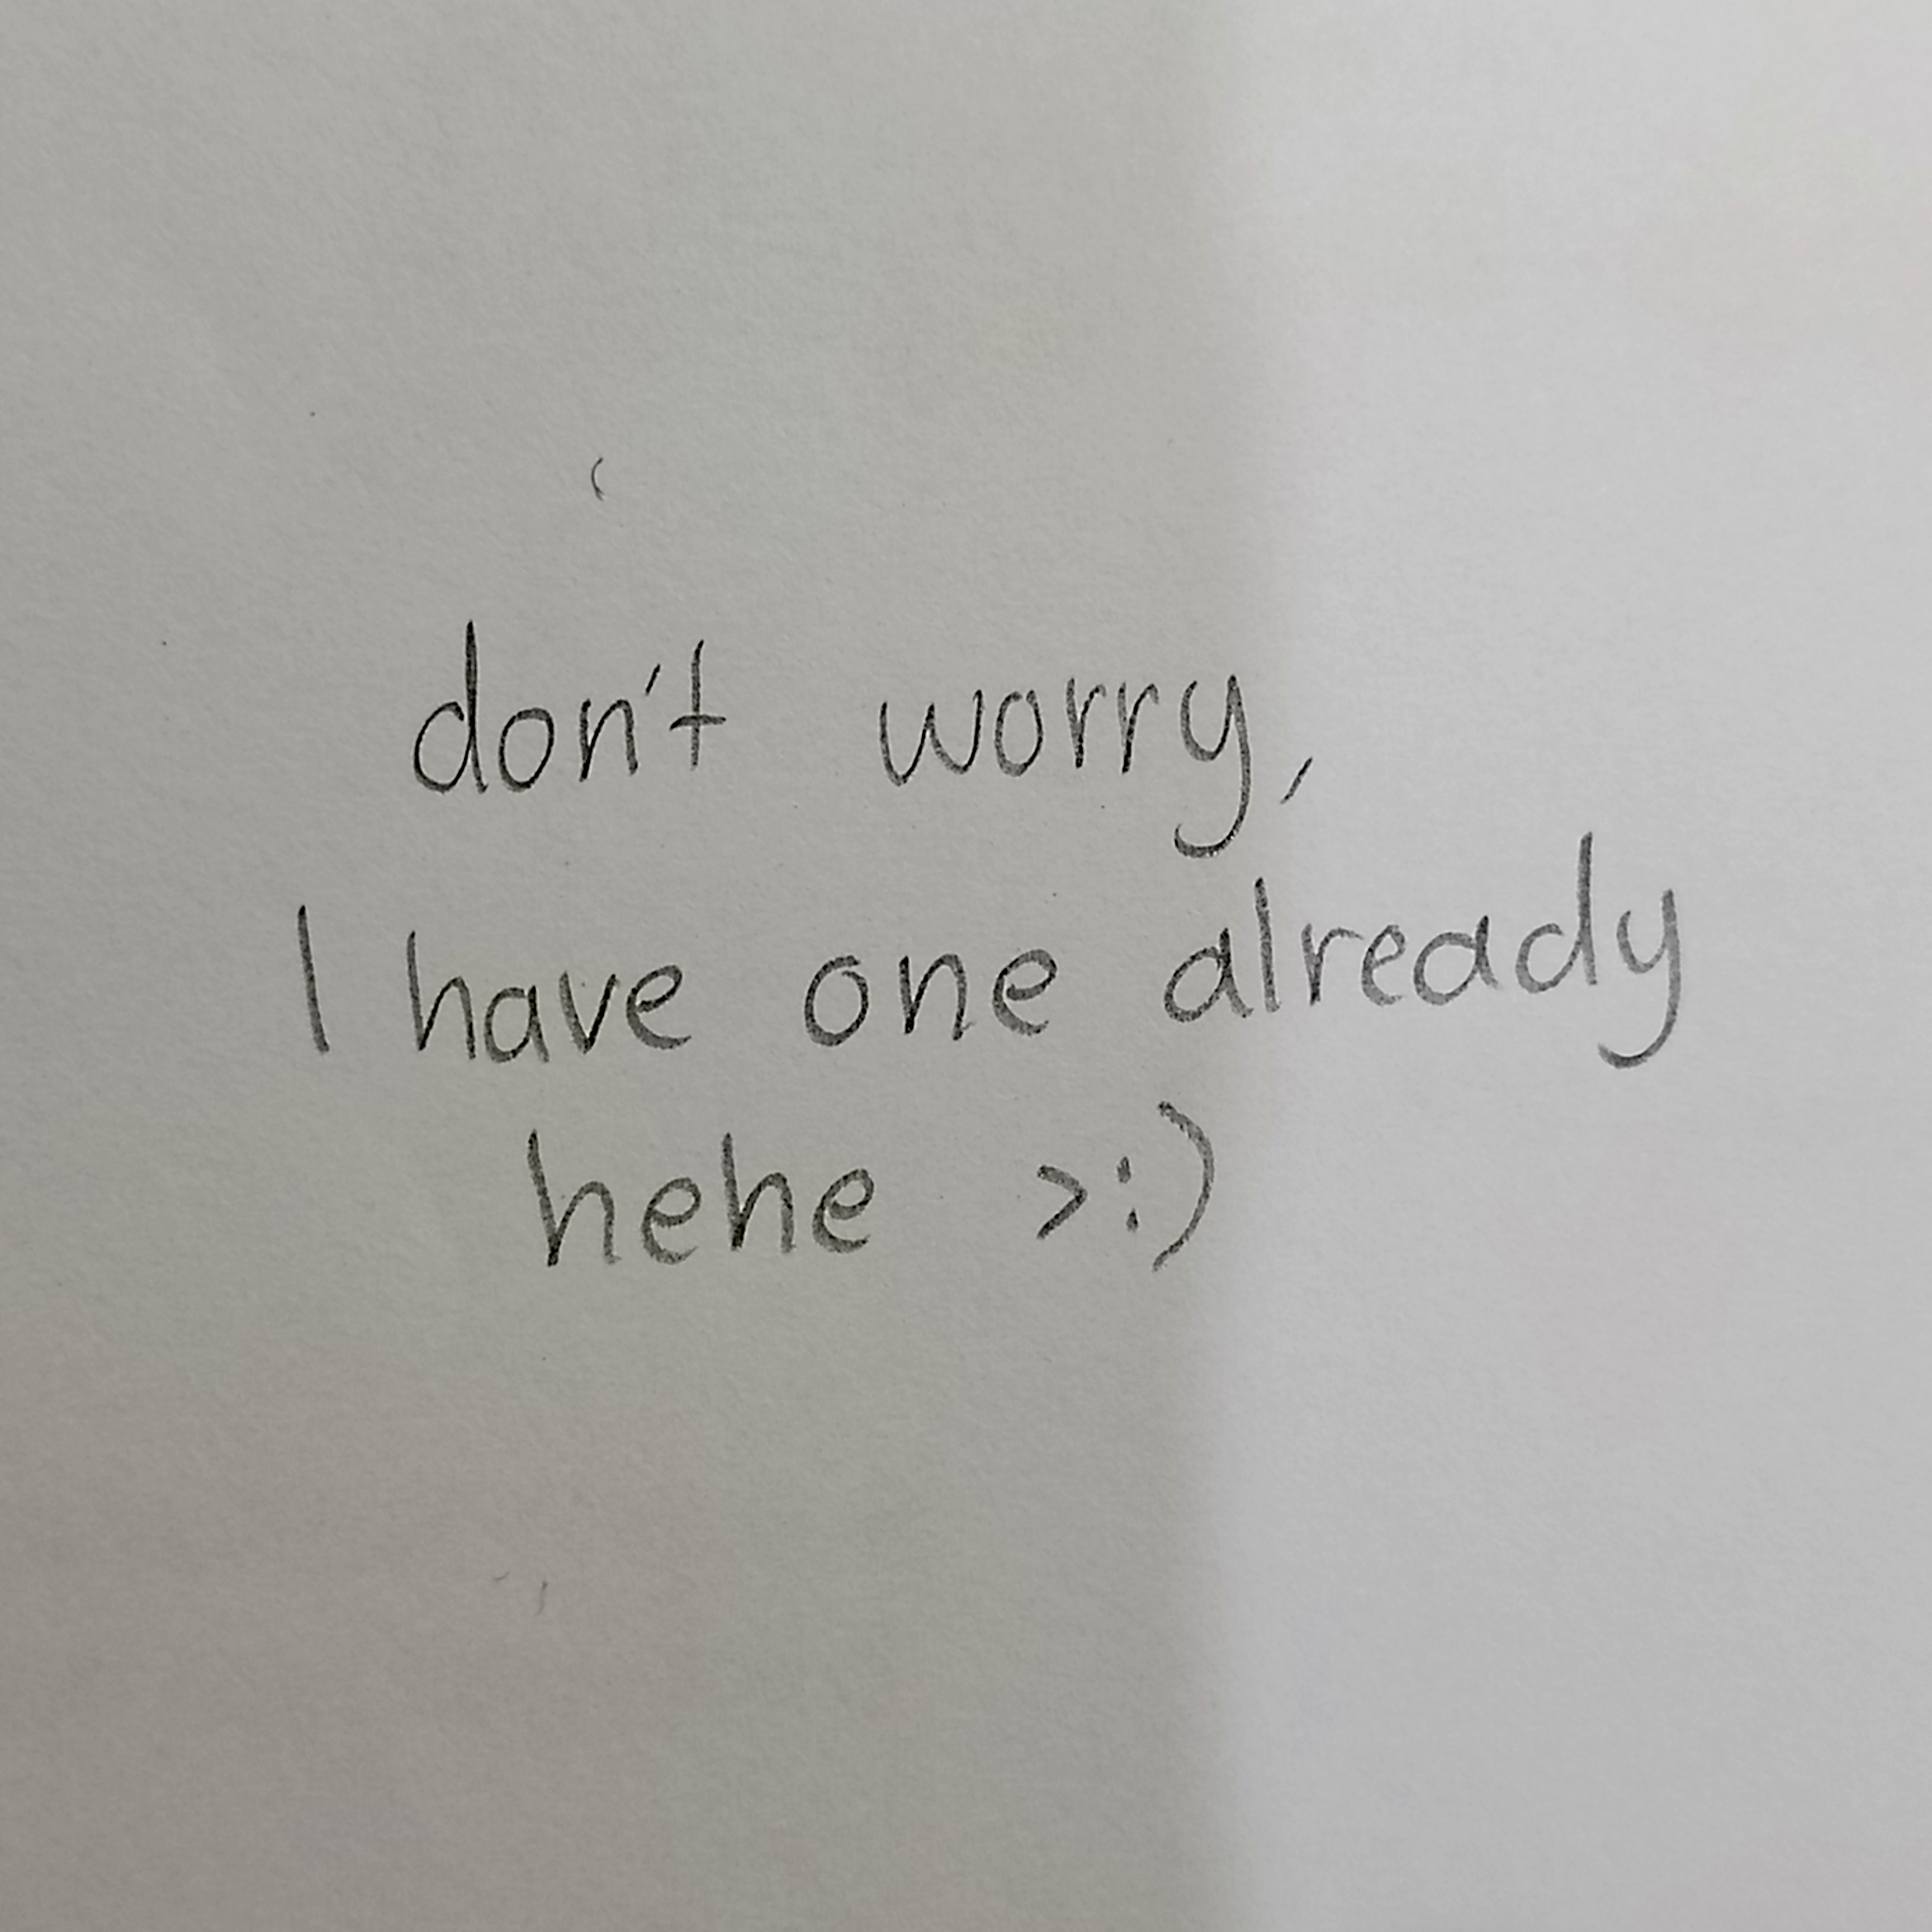 don't worry,
I have one already
hehe >:)